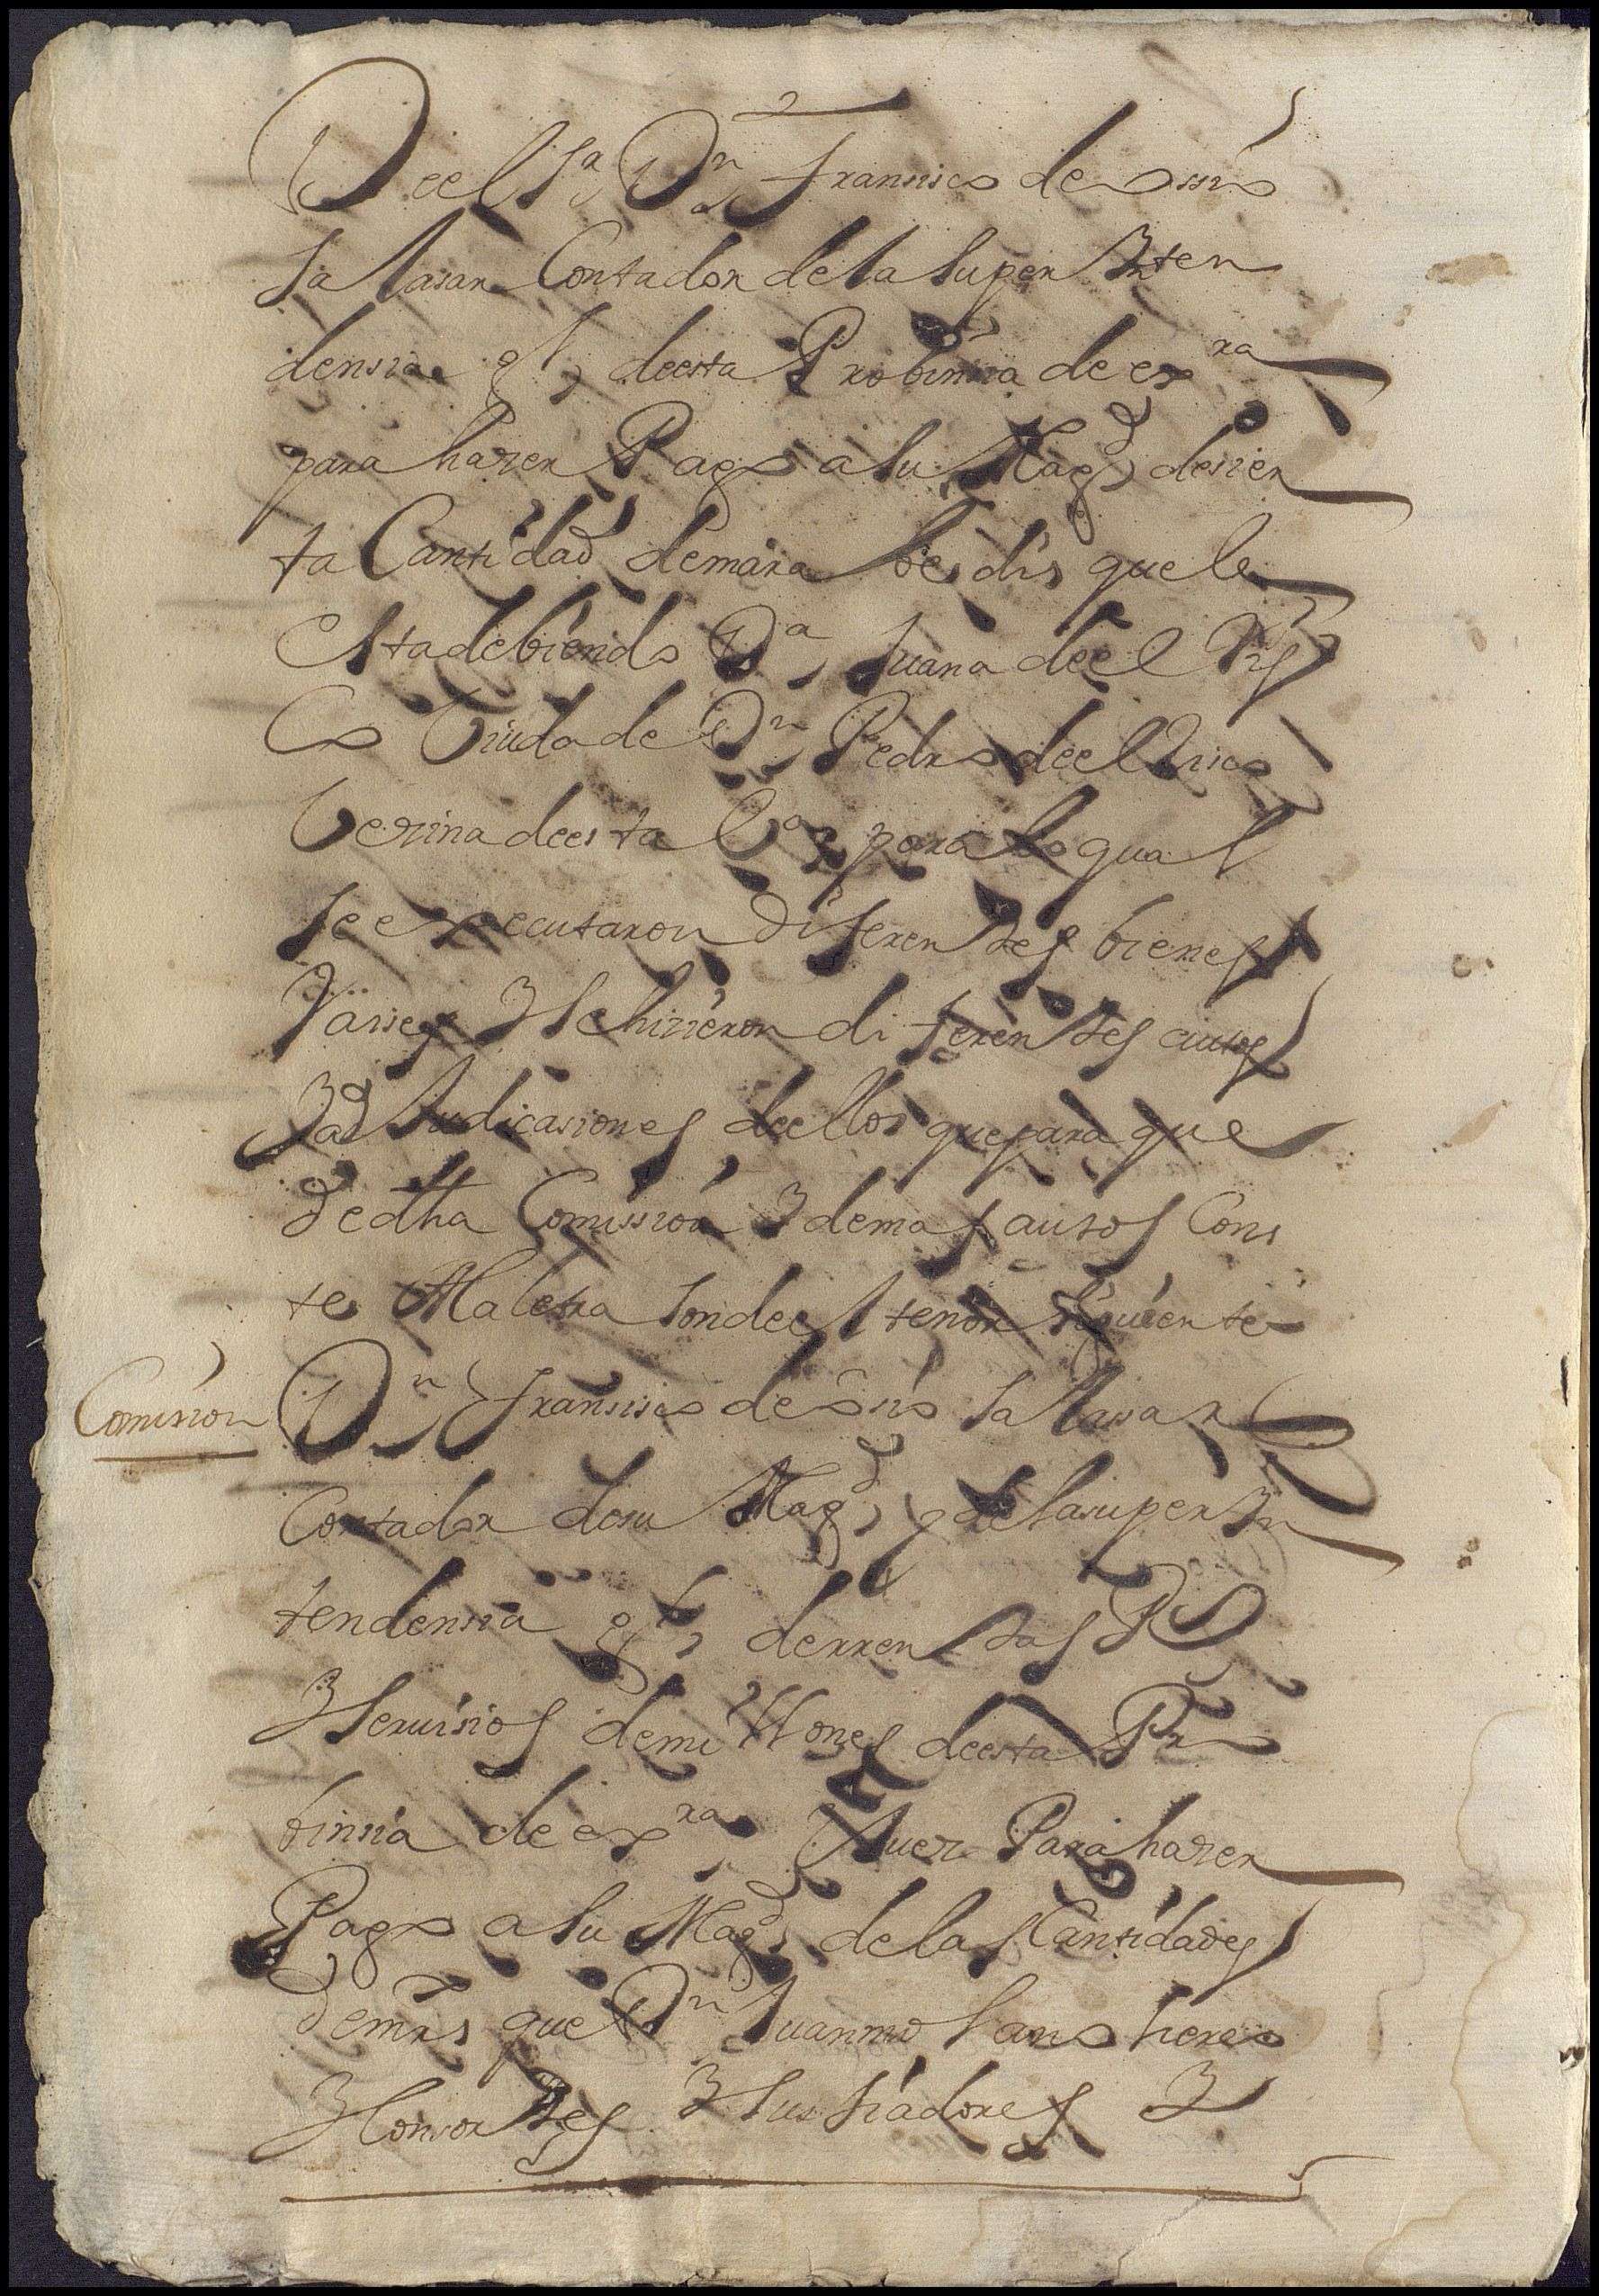 De el Sr Dn Fransisco de Ossio
Salasar Contador de la Super Ynten
densia gl de esta Probinsia de exra
para hazer Pago a Su Magd de sier
ta Cantidad de marabedis que le
esta debiendo Da Juana de el Ris
Co Viuda de Dn Pedro de el Risco
Vezina de esta Va para lo qual
se executaron diferentes bienes
Raises Y se hizieron diferentes autos
Y adJudicasiones de ellos que para que
de dha Comission Y demas autos Cons
te A la letra son de el tenor siguiente
Comision
Dn Fransisco de Ossio Salasar
Contador de su Magd y de la super Yn
tendensia gl de rrentas Rs
Y seruisios de millones de esta Pro
binsia de exra Juez Para hazer
Pago a Su Magd de las Cantidades
de mrs que Dn Juan
Y Consortes Y sus fiadores Y